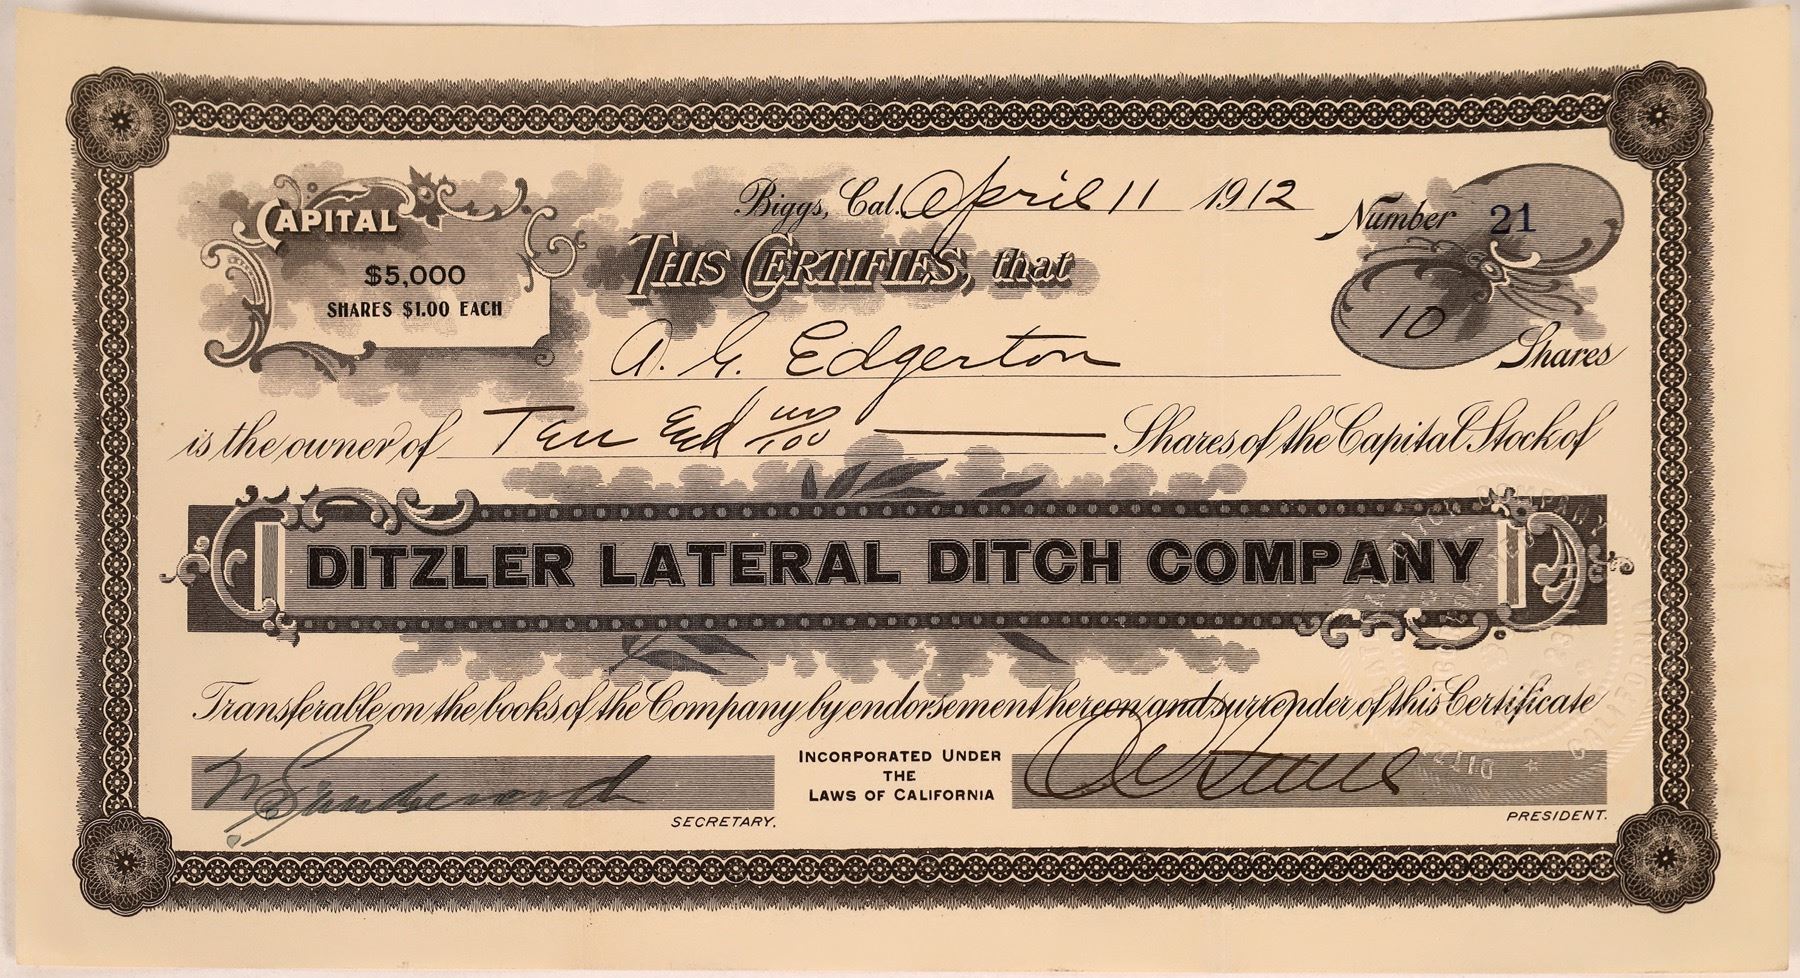 Biggs, Cal. April 11 1912
CAPITAL
$5,000
SHARES $1.00 EACH
Number 21
THIS CERTIFIES, that
10 Shares
A. G. Edgerton
is the owner of Ten and no/100 Shares of the Capital Stock of
DITZLER LATERAL DITCH COMPANY
Transferable on the books of the Company by endorsement hereon and surrender of this Certificate
INCORPORATED UNDER
THE
LAWS OF CALIFORNIA
SECRETARY.
PRESIDENT.
CALIFORNIA